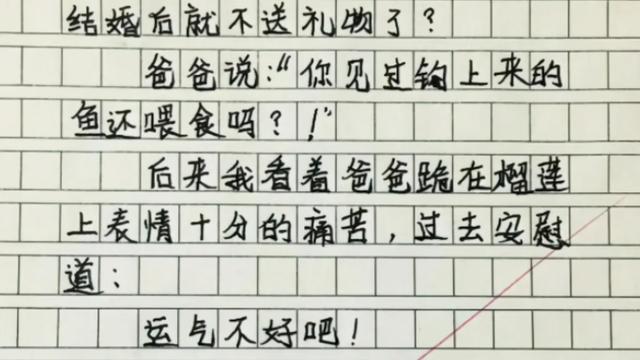 结婚后就不送礼物了？
爸爸说：“你见过钩上来的
鱼还喂食吗？！”
后来我看着爸爸跪在榴莲
上表情十分的痛苦，过去安慰
道：
运气不好吧！